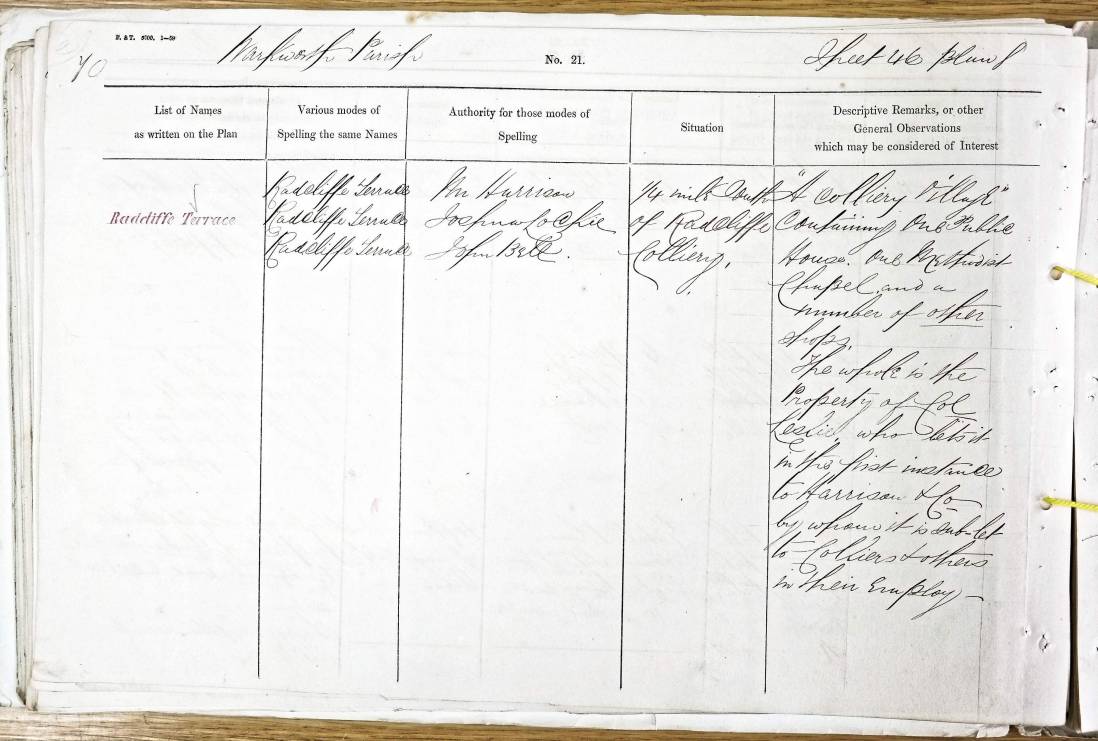 E. & T. 5000. 1-59
70
Warkworth Parish
No. 21.
Sheet 46 Plan 8
List of Names
as written on the Plan
Various modes of
Spelling the same Names
Authority for those modes of
Spelling
Situation
Descriptive Remarks, or other
General Observations
which may be considered of Interest
Radcliffe Terrace
Radcliffe Terrace
Radcliffe Terrace
Radcliffe Terrace
Mr Harrison
Joshua Lochie
John Bell.
1/4 mile South
of Radcliffe
Colliery.
"A Colliery Village"
Containing One Public
House. One Methodist
Chapel, and a
number of other
shops.
The whole is the
Property of Col
Leslie, who lets it
in the first instance
to Harrison & Co
by whom it is sub-let
to Colliers & others
in their Employ —